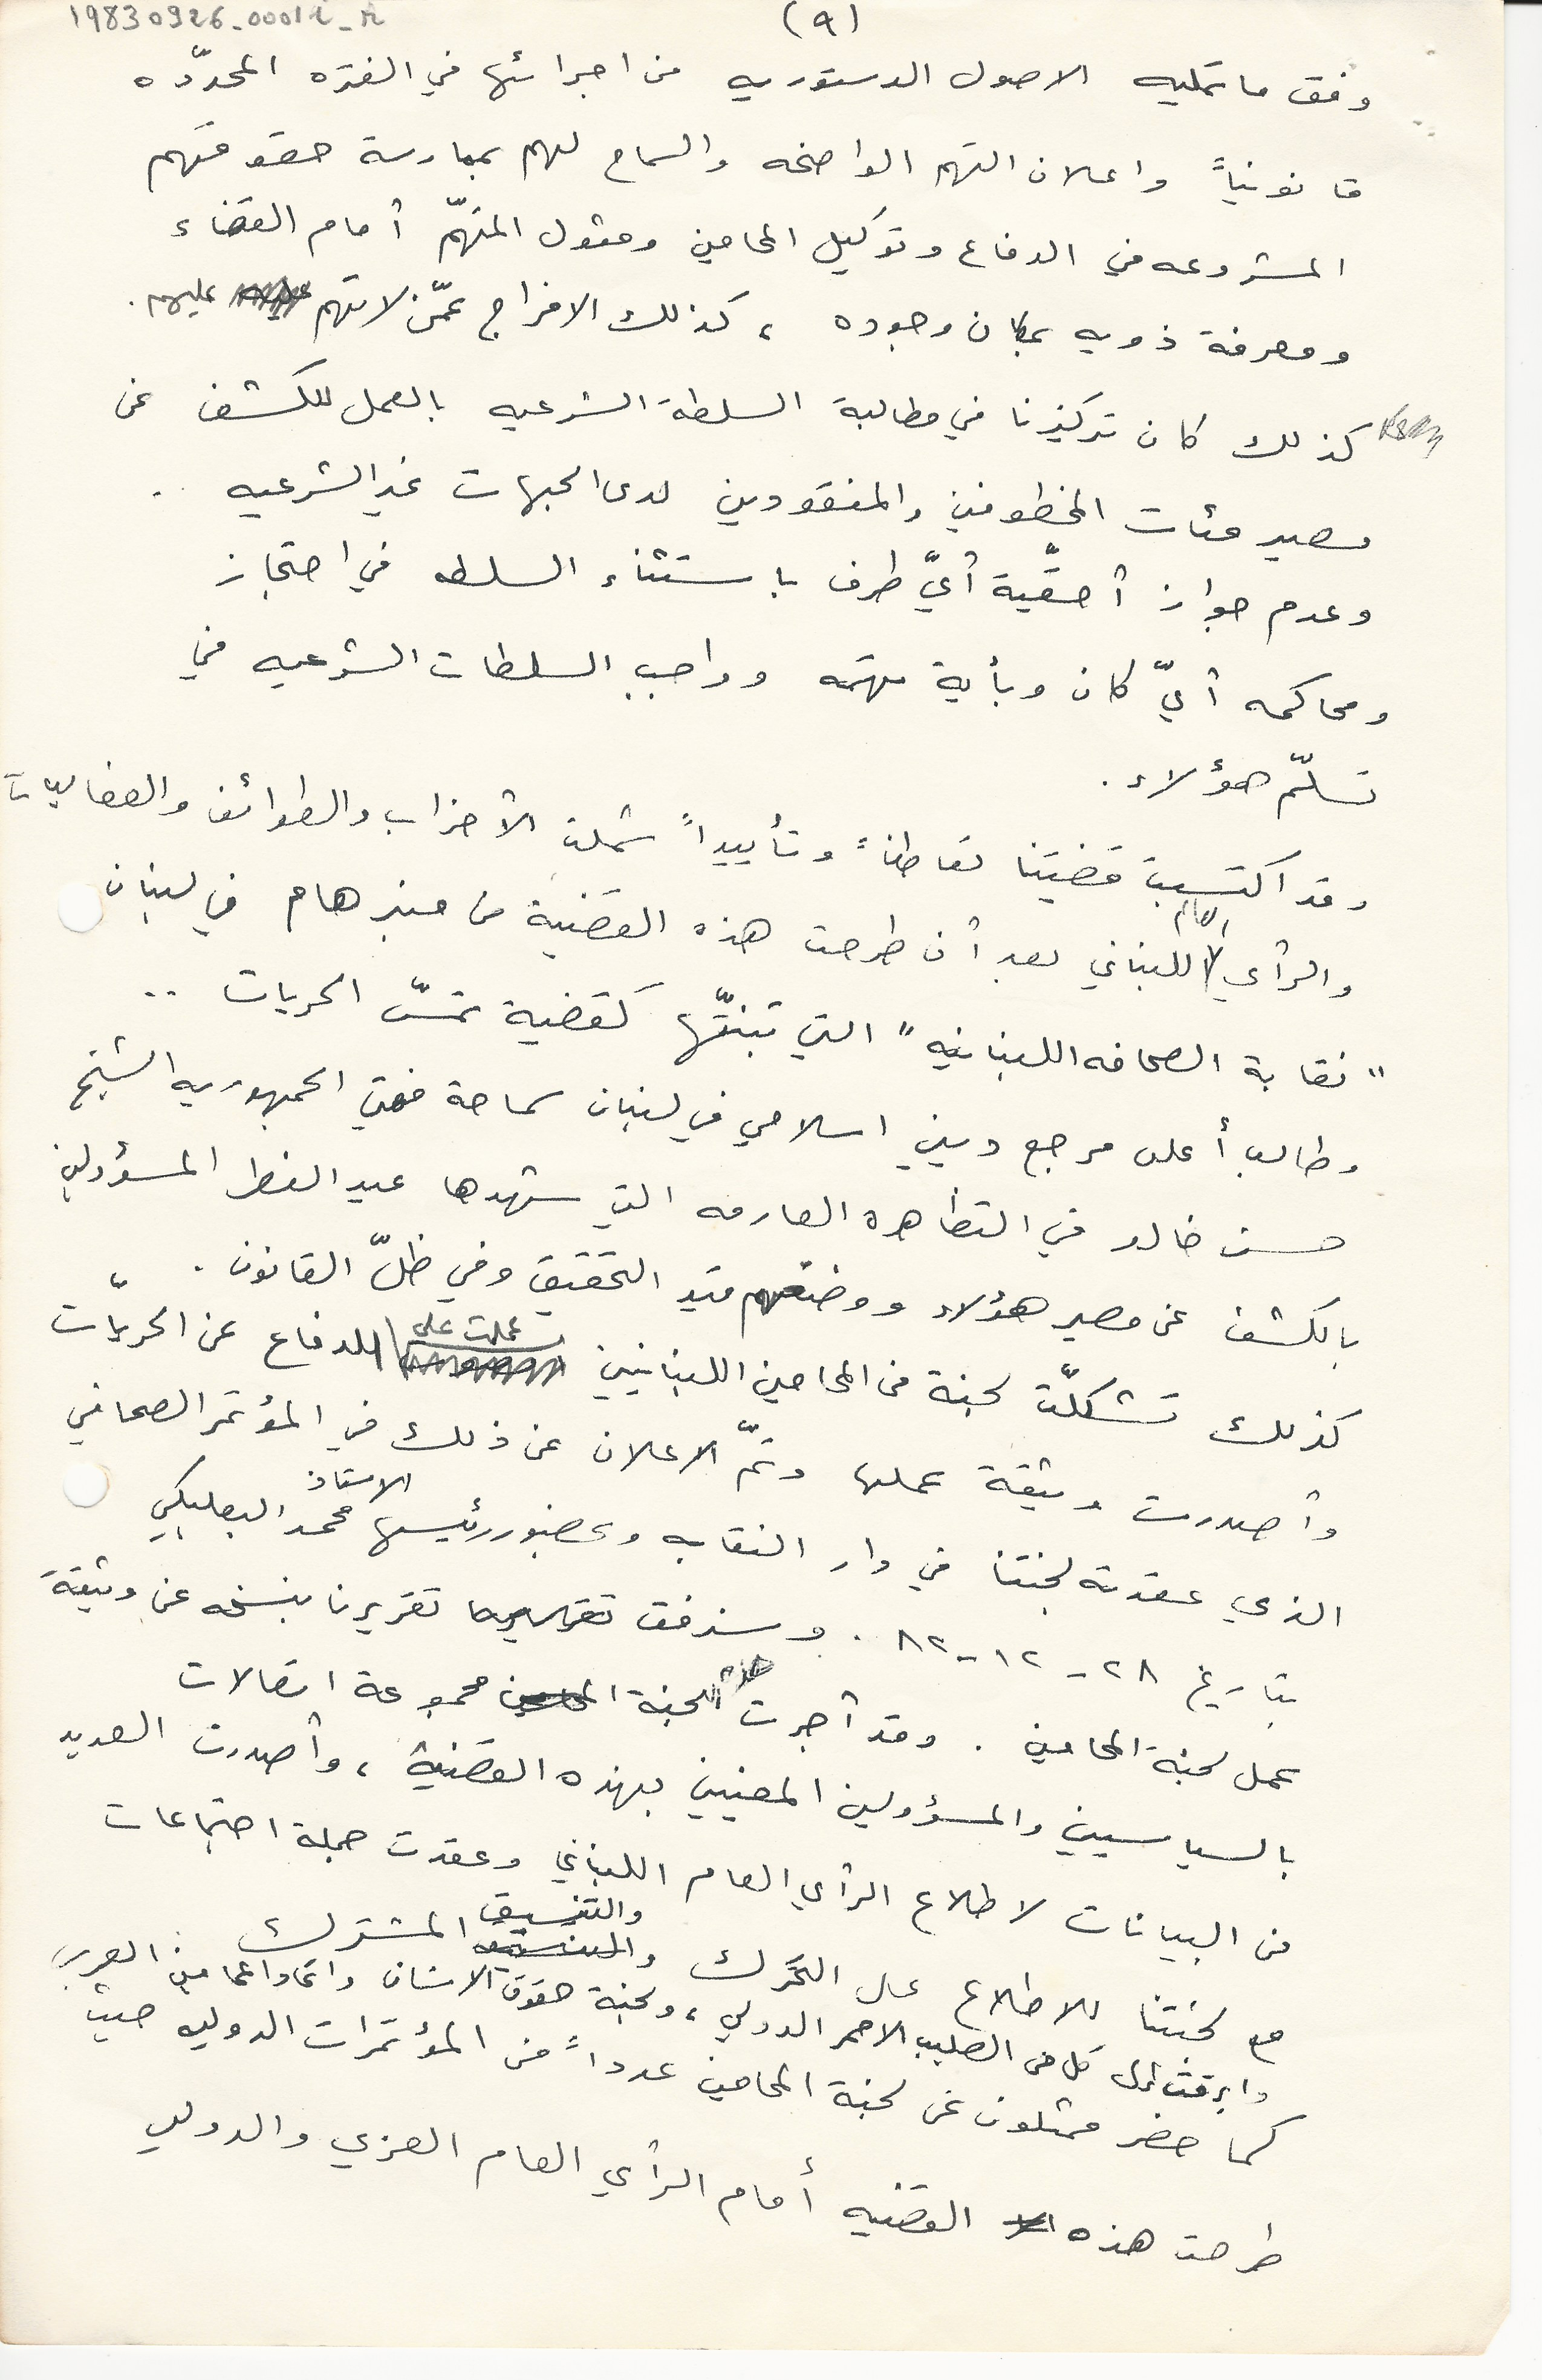 19830926_00011_A
(٩)
وفق ما تمليه الاصول الدستوريه من اجرائها في الفتره المحدّده
قانونياً واعلان التهم الواضحه والسماح لهم بممارسة حقوقهم
المشروعه في الدفاع وتوكيل المحامين ومثول المتهّم أمام القضاء
ومعرفة ذويه بمكان وجوده ، كذلك الافراج عمّن لا تهم عليهم .
كذلك كان تركيزنا في مطالبة السلطة الشرعيه بالعمل للكشف عن
مصير مئات المخطوفين والمفقودين لدى الجهات غير الشرعيه ..
وعدم جواز أحقّية أيّ طرف باستثناء السلطه في احتجاز
ومحاكمه أيّ كان وبأية تهمه وواجب السلطات الشرعيه في
تسلّم هؤلاء .
وقد اكتسبت قضيتنا تعاطفاً وتأييداً شملت الأحزاب والطوائف والفعاليّات
والرأي العام اللبناني بعد أن طرحت هذه القضية من منبر هام في لبنان
" نقابة الصحافه اللبنانيه " التي تبنتّها كقضية تمسّ الحريات ..
وطالب أعلى مرجع ديني اسلامي في لبنان سماحة مفتي الجمهوريه الشيخ
حسن خالد في التظاهره العارمه التي شهدها عيد الفطر المسؤولين
بالكشف عن مصير هؤلاء ووضعهم قيد التحقيق وفي ظلّ القانون .
كذلك تشكلّت لجنة من المحامين اللبنانيين عملت على الدفاع عن الحريّات
وأصدرت وثيقة عملها وتمّ الاعلان عن ذلك في المؤتمر الصحافي
الذي عقدته لجنتنا في دار النقابه وبحضور رئيسها الاستاذ محمد البعلبكي
بتاريخ ٢٨ - ١٢ - ٨٢ . وسنرفق تقريرنا بنسخه عن وثيقة
عمل لجنة المحامين . وقد أجرت اللجنة مجموعة اتصالات
بالسياسيين والمسؤولين المعنيين بهذه القضية ، وأصدرت العديد
من البيانات لاطلاع الرأي العام اللبناني وعقدت جملة اجتماعات
مع لجنتنا للاطلاع على التحرك والتنسيق المشترك
وابرقت الى كل من الصليب الاحمر الدولي ، ولجنة حقوق الانسان واتحاد المحامين العرب
كما حضر ممثلون عن لجنة المحامين عدداً من المؤتمرات الدوليه حيث
طرحت هذه القضيه أمام الرأي العام العربي والدولي